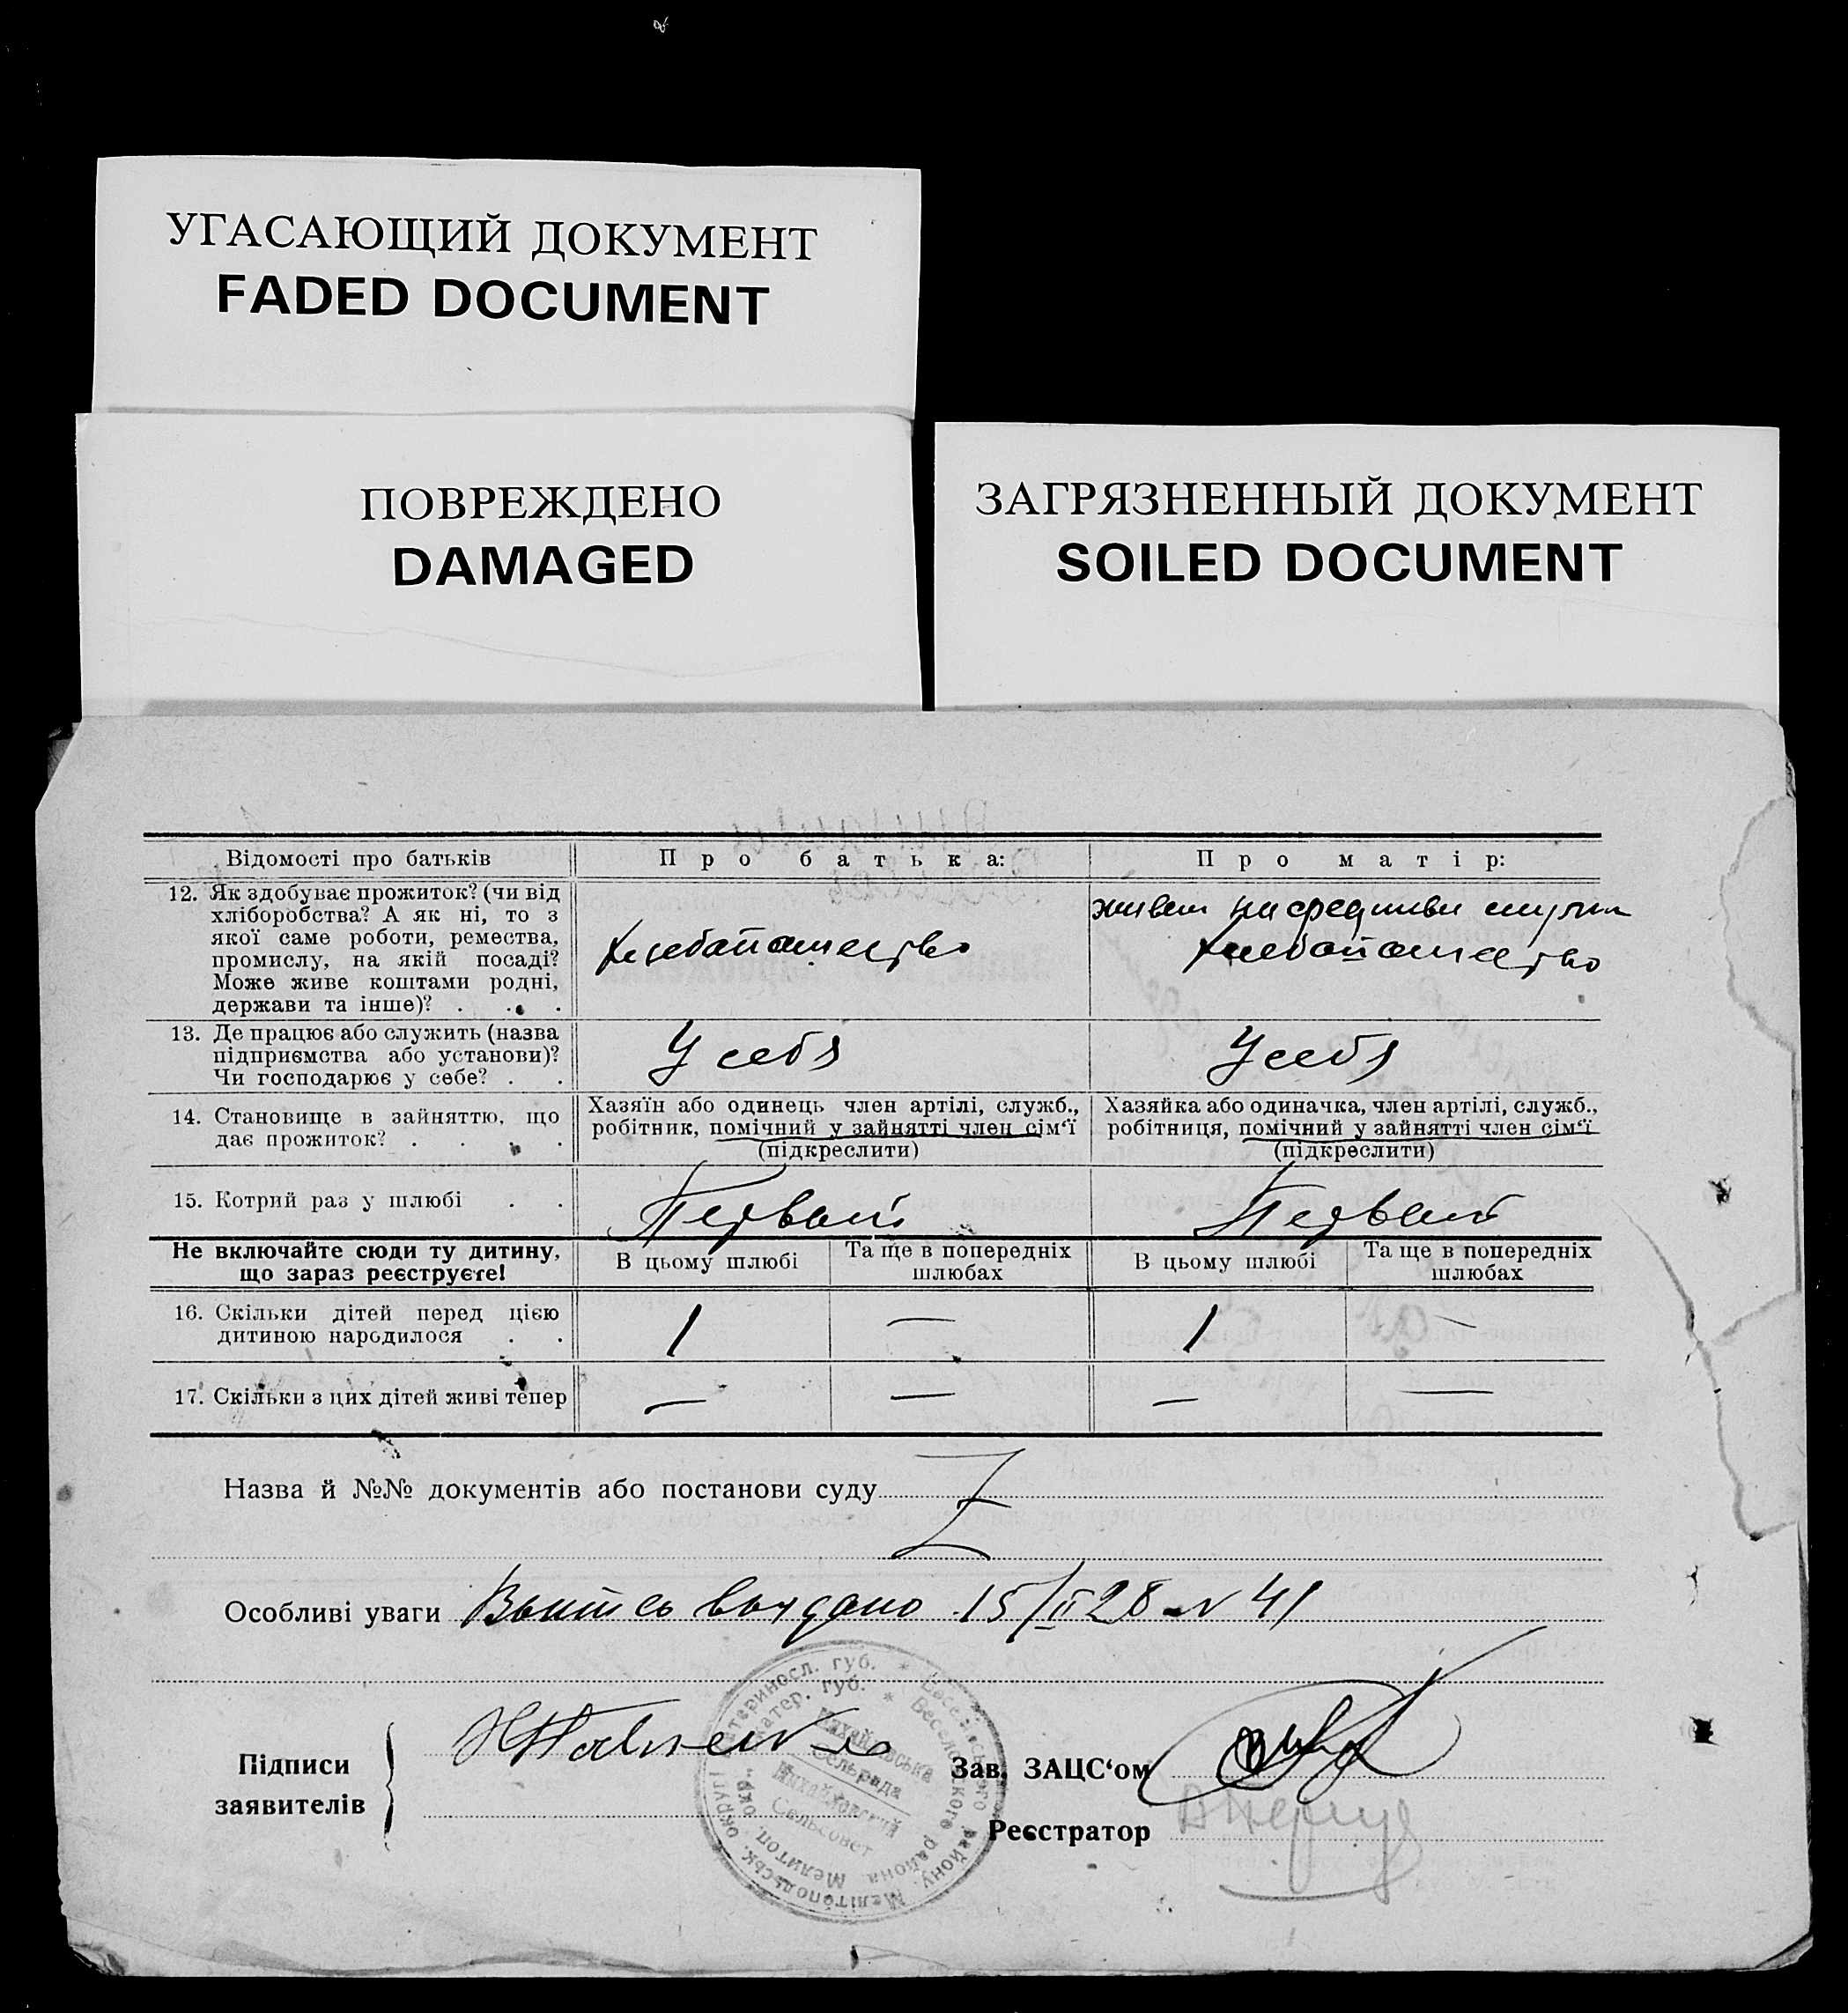 УГАСАЮЩИЙ ДОКУМЕНТ
FADED DOCUMENT
ПОВРЕЖДЕНО
DAMAGED
ЗАГРЯЗНЕННЫЙ ДОКУМЕНТ
SOILED DOCUMENT
Відомості про батьків
Про батька:
Про матір:
12. Як здобуває прожиток? (чи від
хліборобства? А як ні, то з
якої саме роботи, ремества,
промислу, на якій посаді?
Може живе коштами родні,
держави та інше)? . . .
хлебопашество
живет на средства
хлебопашество
13. Де працює або служить (назва
підприємства або установи)?
Чи господарює у себе? . .
У себя
У себя
14. Становище в зайняттю, що
дає прожиток? . . . .
Хазяїн або одинець член артілі, служб.,
робітник, помічний у зайнятті член сім‘ї
(підкреслити)
Хазяйка або одиначка, член артілі, служб.,
робітниця, помічний у зайнятті член сім‘ї
(підкреслити)
15. Котрий раз у шлюбі . .
Первый
Первый
Не включайте сюди ту дитину,
що зараз реєструєте!
В цьому шлюбі
Та ще в попередніх
шлюбах
В цьому шлюбі
Та ще в попередніх
шлюбах
16. Скільки дітей перед цією
дитиною народилося . .
1 — 1 —
17. Скільки з цих дітей живі тепер
— — — —
Назва й №№ документів або постанови суду
Z
Особливі уваги Выпись выдано 15/II 28 N 41
Підписи
заявителів
Зав. ЗАЦС‘ом
Реєстратор
Михайлівська
Сельрада
Михайловский
Сельсовет